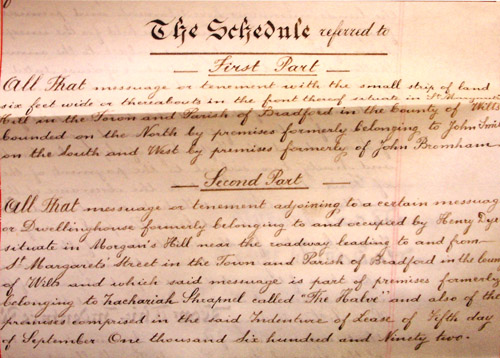 The Schedule referred to
First Part
All That messuage or tenement with the small strip of land
six feet wide or thereabouts in the front thereof situate in St
Hill in the Town and Parish of Bradford in the County of Wilts
bounded on the North by premises formerly belonging to John
on the South and West by premises formerly of John Bromham
Second Part
All That messuage or tenement adjoining to a certain messuag
or Dwellinghouse formerly belonging to and occupied by Henry Dys
situate in Morgan's Hill near the roadway leading to and from
St Margarets' Street in the Town and Parish of Bradford in the Coun
of Wilts and which said messuage is part of premises formerly
belonging to Zachariah Shrapnel called "The Halve" and also of the
premises comprised in the said Indenture of Lease of Fifth day
of September One thousand Six hundred and Ninety two.